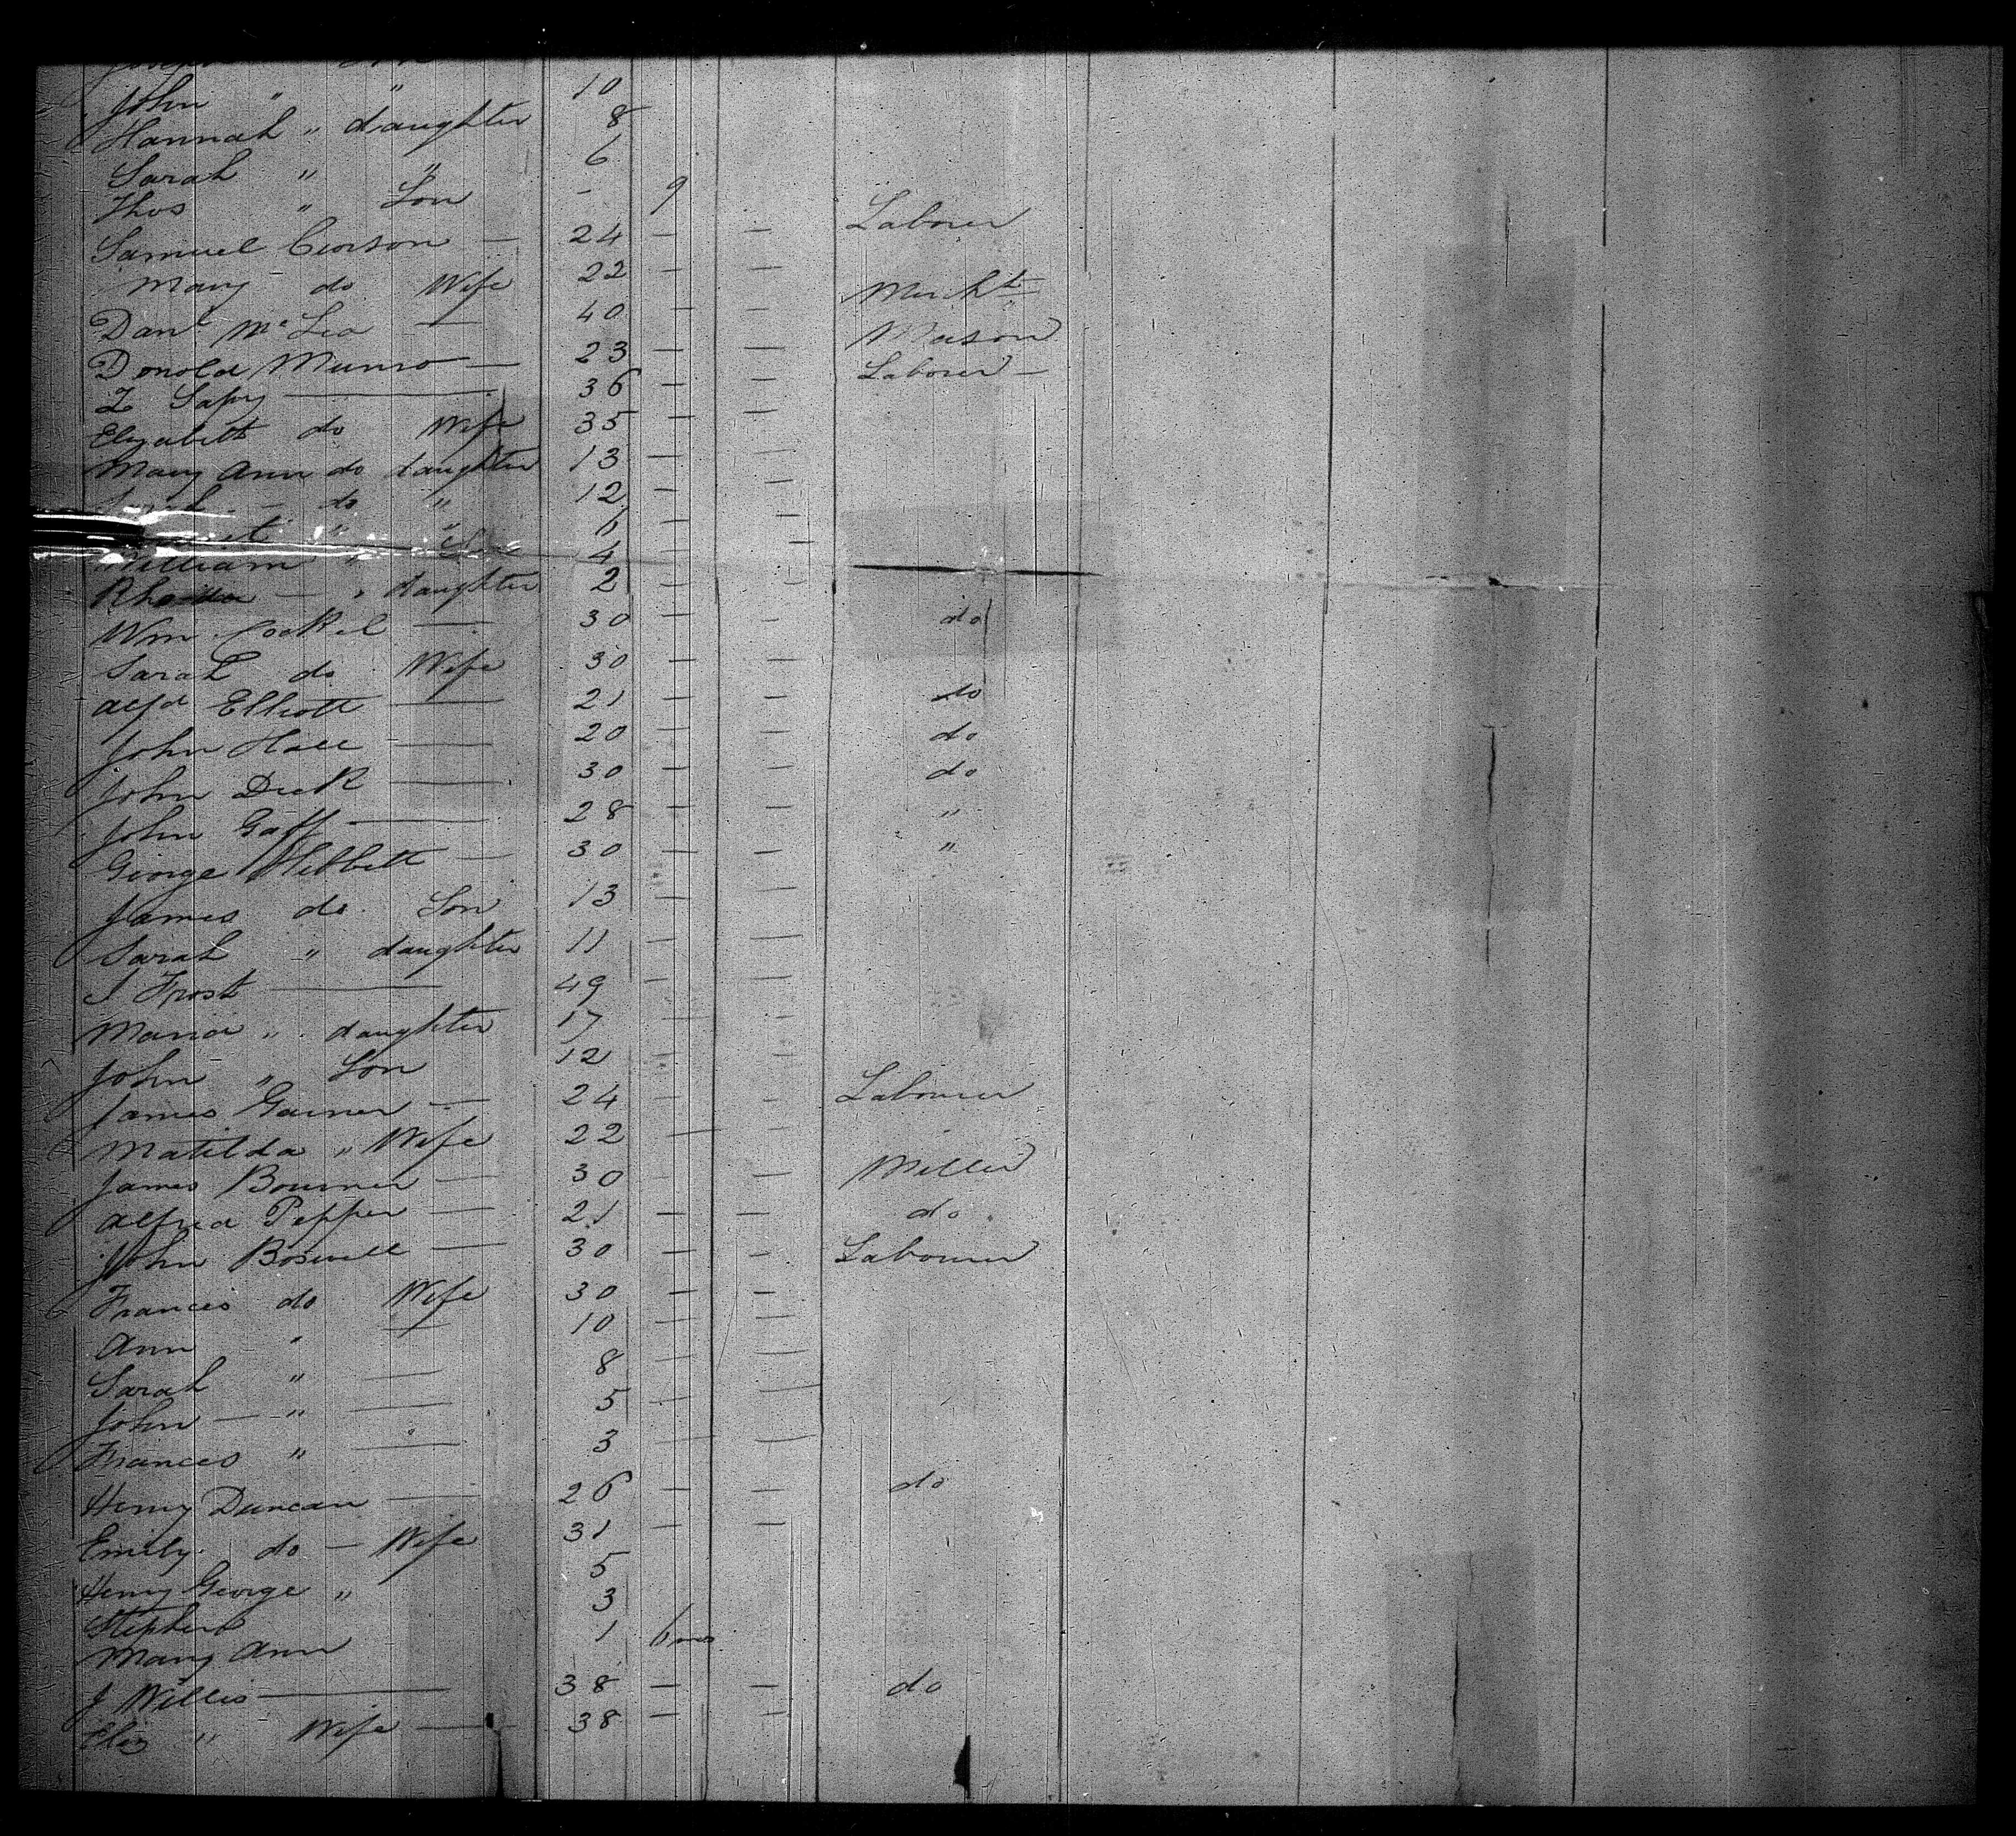 John " " 10
Hannah " daughter 8
Sarah " " 6
Thos " Son - 9
Samuel Cowson — 24 — — Laborer
Mary do Wife 22 — —
Danl McLea — 40 — — Mercht
Donold Munro — 23 — — Mason
36 — — Laborer —
Elizabeth do Wife 35 — —
Mary Ann do daughter 13 — —
do " 12 — —
" 6 — —
William " 4 — —
Rhoda — " daughter 2 — —
Wm — 30 — — do
Sarah do Wife 30 — —
Alfd Elliott — 21 — — do
John Hall — 20 — — do
John Dick — 30 — — do
John Gaff — 28 — — "
George Hibbett — 30 — — "
James do Son 13 —
Sarah " daughter 11 — —
J Frost — 49 — —
Maria " daughter 17 — —
John " Son 12 — —
James Garner — 24 — — Labourer
Matilda " Wife 22 —
James Bourner — 30 — — Miller
Alfred Pepper — 21 — — do
John Boswell — 30 — — Labourer
Frances do Wife 30 — —
Ann " — 10 — —
Sarah " — 8 — —
John — " — 5 — —
Frances " — 3 — —
Henry Duncan — 26 — — do
Emily do — Wife 31 — —
Henry George " 5
Stephen 3
Mary Ann 1 6 mos
J Willis — 38 — — do
Eliz " Wife — 38 — —